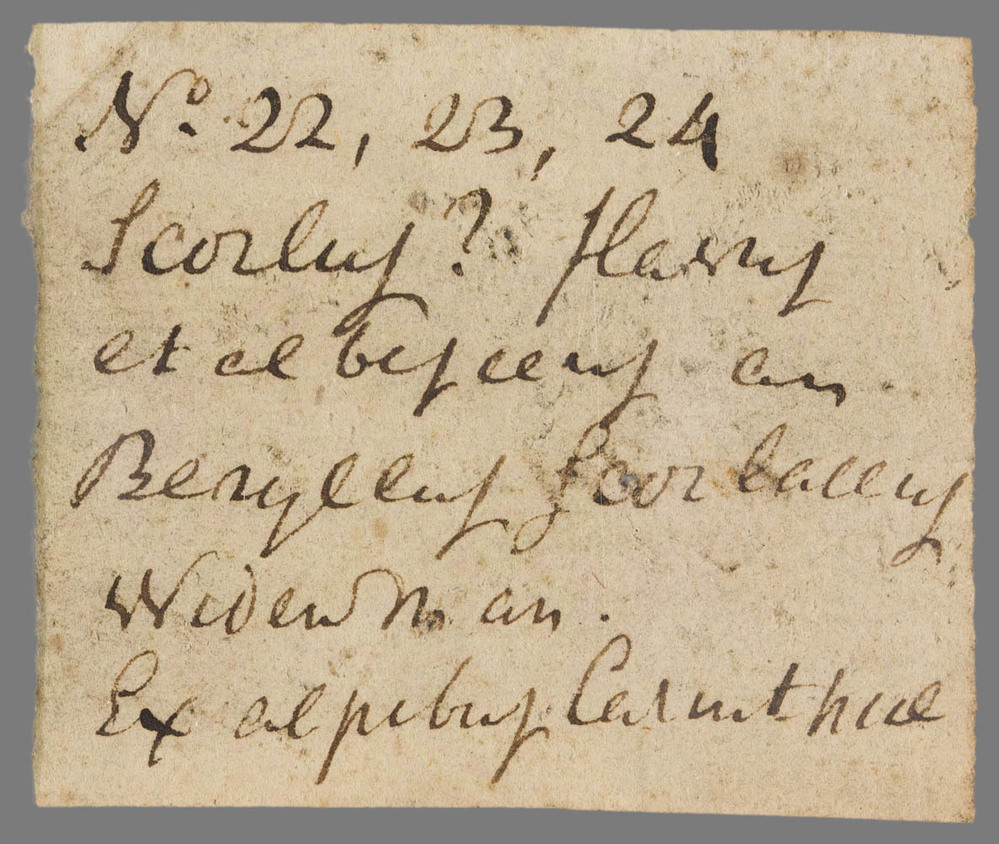 No. 22, 23, 24
Scorlus? flavus
et albescens an
Beryllus Scorlaceus
Widenman.
Ex alpibus Carinthiae